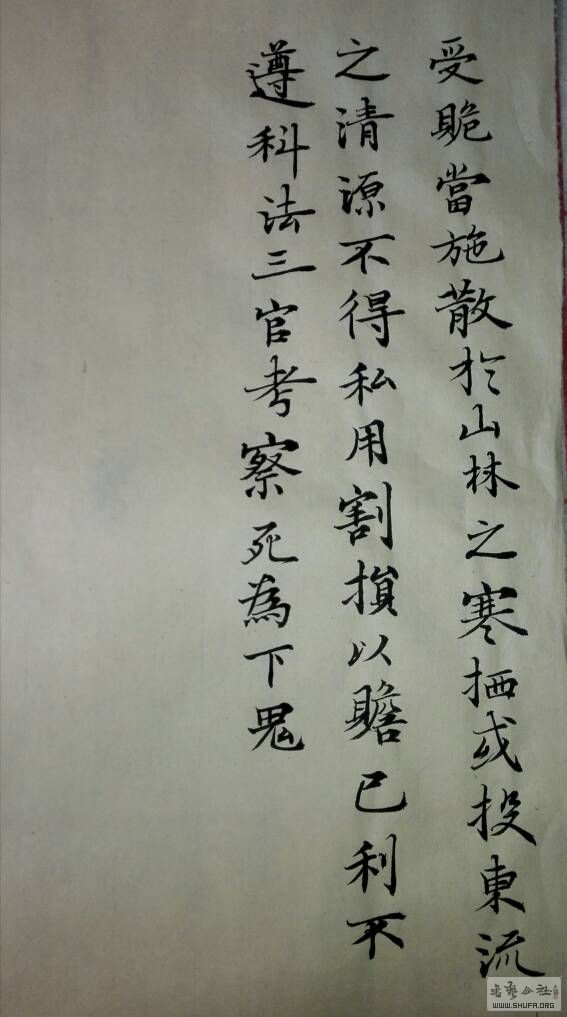 受賍當施散於山林之寒栖或投東流
之清源不得私用割損以贍己利不
遵科法三官考察死為下鬼
書藝公社
WWW.SHUFA.ORG